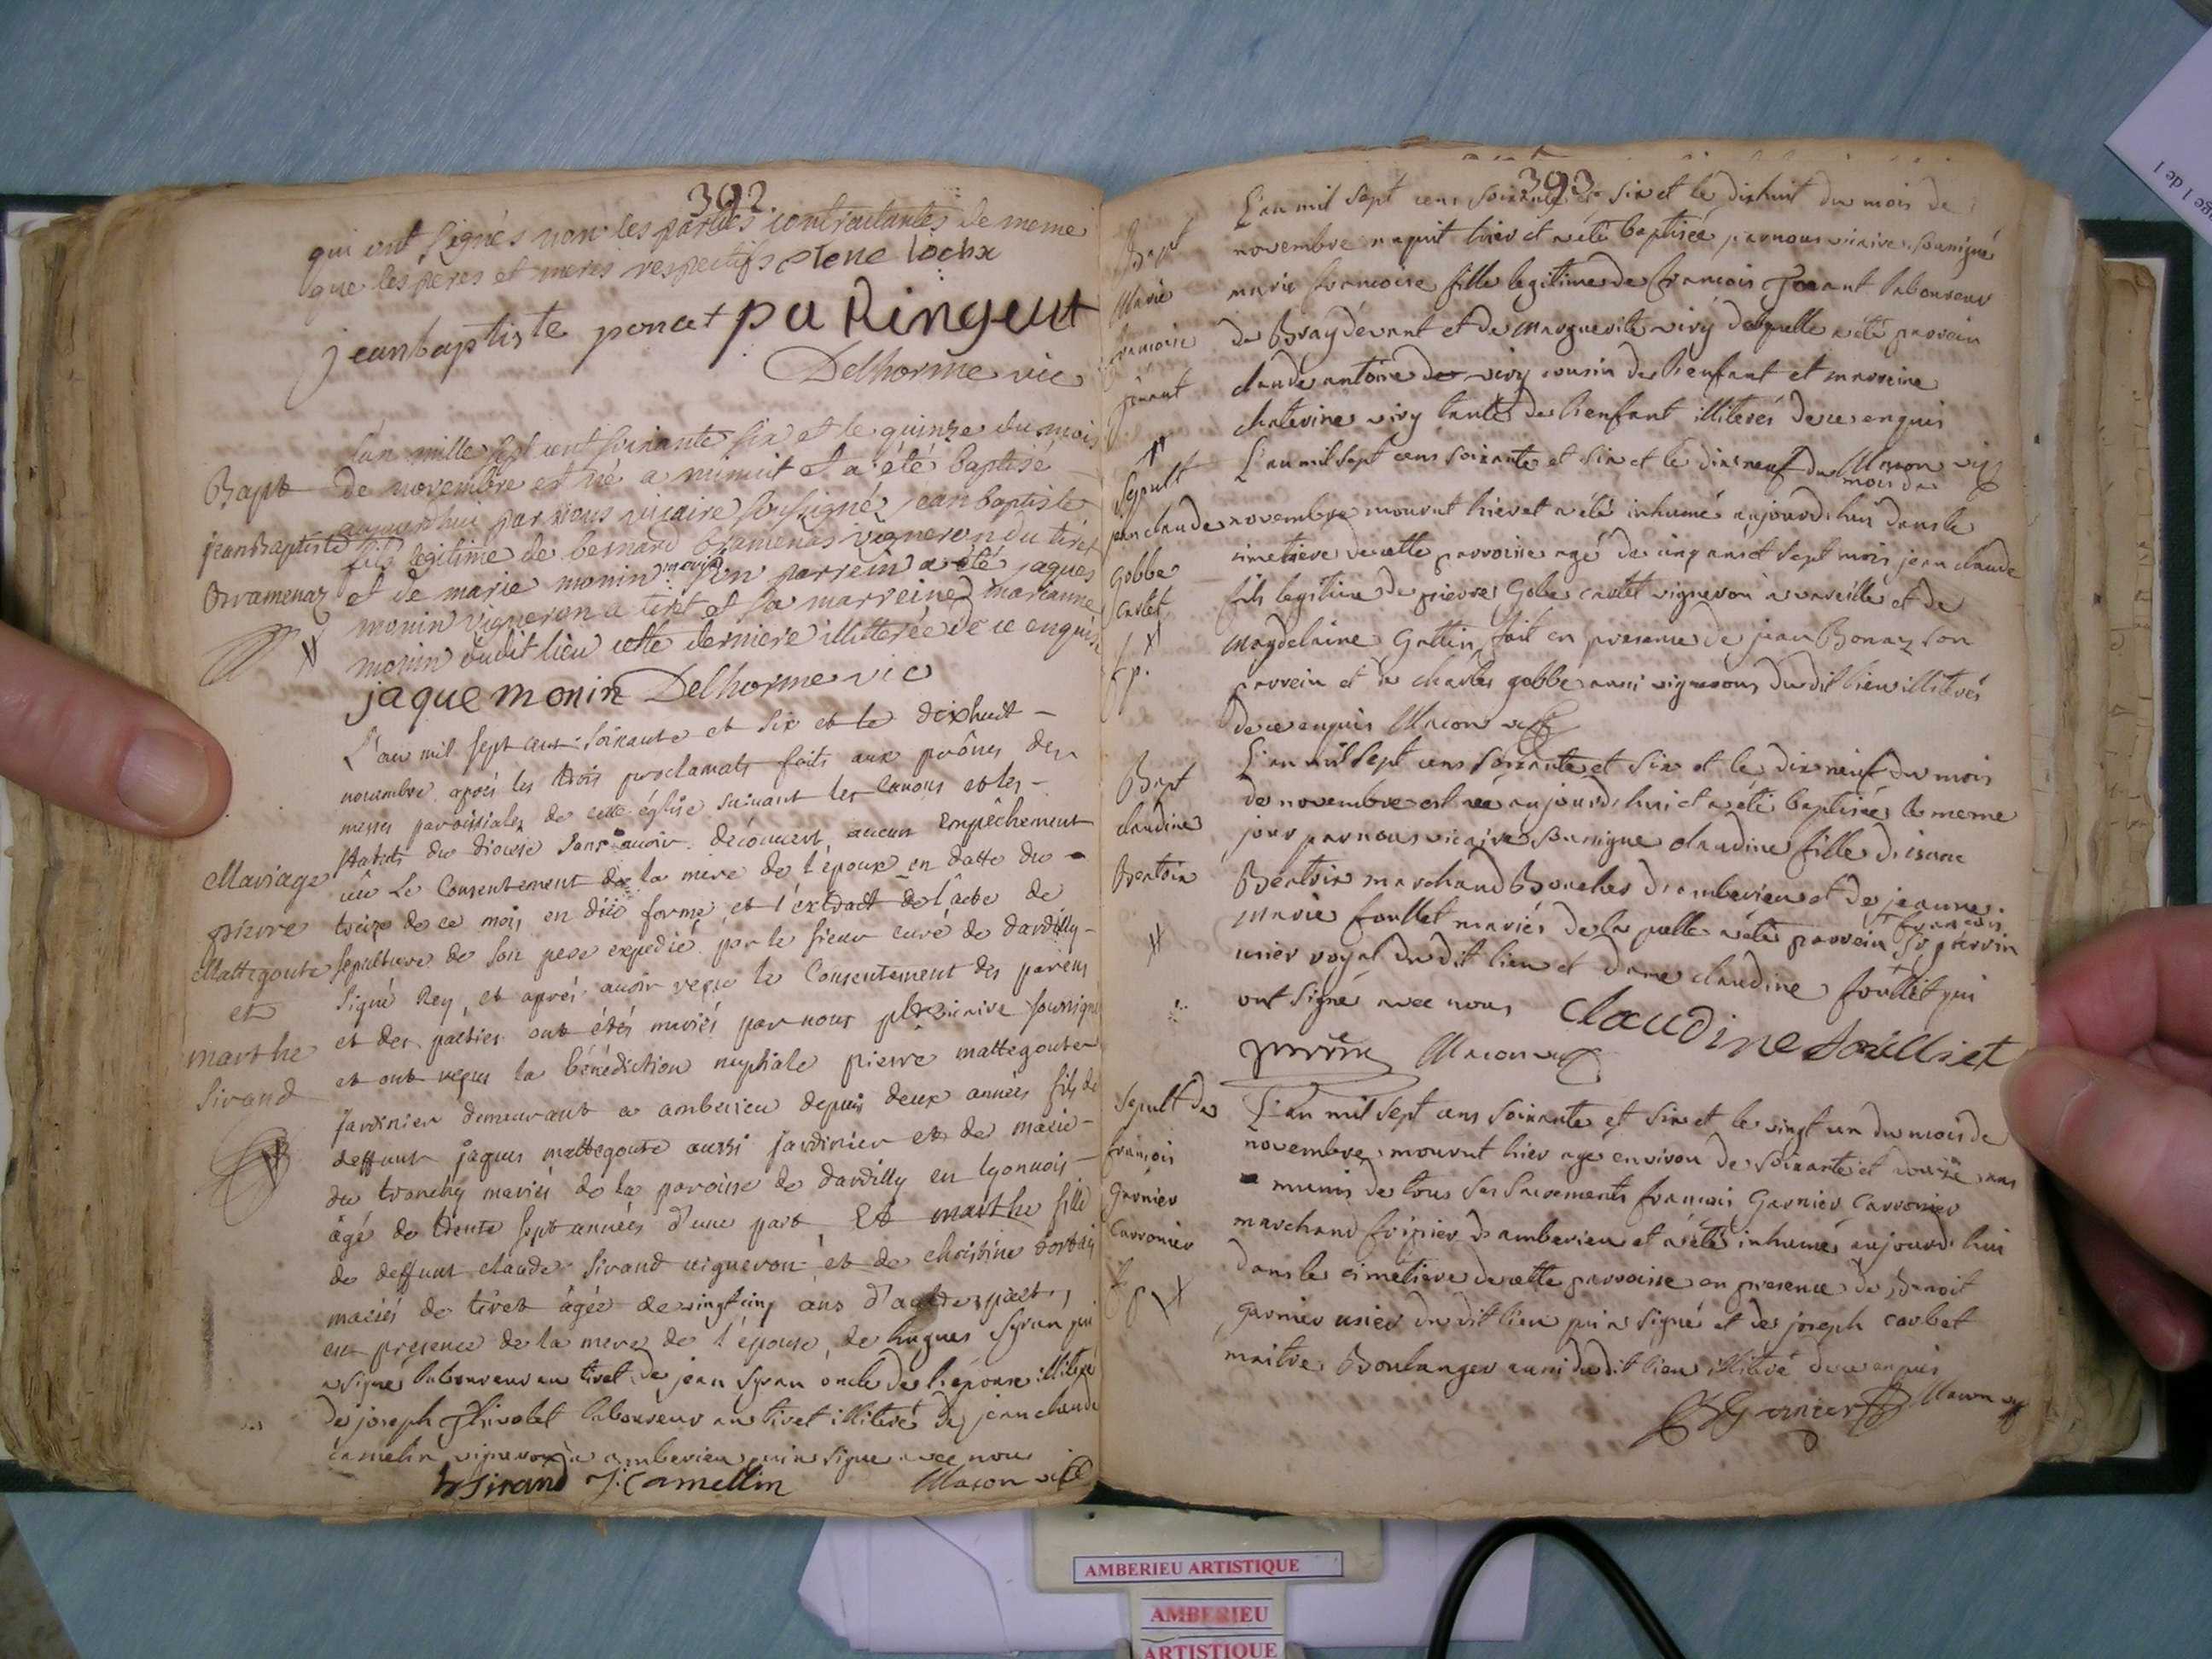 392.
qui ont signés non les parties contractantes de meme
que les peres et meres respectifs
jeanbaptiste ponat
Delhorme vic
Bapt
jean Baptiste
l'an mille sept cent soixante six et le quinze du mois
de novembre est né a minuit et a été baptisé
aujourdhui par nous vicaire soussigné jean baptiste
fils legitime de bernard vigneron du tiret
et de marie monin mariés son parrein a été jaques
monin vigneron a tiret et sa marreine marianne
monin dudit lieu cette derniere illitterée de ce enquise
jaque monin Delhorme vic
Mariage
pierre
Mattegoute
et
marthe
Sirand
L'an mil sept cent soixante et six et le dixhuit
novembre après les trois proclamats faits aux prônes des
messes paroissiales de cette église suivant les canons et les
statuts du diocese sans avoir découvert aucun empêchement
vû le Consentement de la mere de l'époux en datte du
treize de ce mois en düe forme et l'extrait de l'acte de
sepulture de son pere expedié par le sieur curé de dardilly
signé Rey, et aprés avoir reçu le Consentement des parens
et des parties ont étés mariés par nous vicaire soussigné
et ont reçus la bénédiction nuptiale pierre mattegoute
jardinier demeurant a amberieu depuis deux années fils de
deffunt jaques mattegoute aussi jardinier et de marie
du tranchy mariés de la paroisse de dardilly en lyonnois
âgé de trente sept années d'une part, Et marthe fille
de deffunt claude Sirand vigneron et de christine
mariés de tiret âgée de vingt cinq ans d'autre part,
en presence de la mere de l'épouse, de hugues Syran qui
a signé laboureur au tiret de jean Syran oncle de l'epouse illiteré
de joseph laboureur au tiret illiteré de jean claude
camelin vigneron a amberieu qui a signé avec nous
h Sirand J. Camellin Macon vic
393
Bapt
Marie
francoise
L'an mil sept cens soixante et six et le dixhuit du mois de
novembre naquit hier et a été baptisée par nous vicaire soussigné
marie francoise fille legitime de francois laboureur
de Braydevant et de Marguerite vivy de laquelle a été parrein
claude antoine vivy cousin de l'enfant et marreine
chaterine vivy tante de l'enfant illiterés de ce enquis
Macon vic
Sepult
jean claude
Gobbe
Castet
L'an mil sept cens soixante et six et le dix neuf du mois de
novembre mourut hier et a été inhumé aujourd'hui dans le
cimetiere de cette parroisse agé de cinq ans et sept mois jean claude
fils legitime de pierre Gobe castet vigneron a vareille et de
Magdelaine Gottin, fait en presence de jean Bonaz son
parrein et de charles gobbe aussi vignerons dudit lieu illiterés
de ce enquis Macon vic
Bapt
claudine
Bertoix
L'an mil sept cens soixante et six et le dix neuf du mois
de novembre est née aujourd'hui et a été baptisée le meme
jour par nous vicaire soussigné claudine fille d'isaac
Bertoix marchand Boucher d'amberieu et de jeanne
Marie foullet mariés de la quelle a été parrein Sr francois perrin
usier royal du dit lieu et dame claudine foullet qui
ont signé avec nous claudine
perrin Macon vic
Sepult de
francois
Garnier
Carronier
L'an mil sept cens soixante et six et le vingt un du mois de
novembre mourut hier age environ de soixante et douze ans
munis de tous ses sacrements francois Garnier Carronier
marchand fripier d'amberieu et a été inhumé aujourd'hui
dans le cimetiere de cette parroisse en presence de Benoit
garnier usier du dit lieu qui a signé et de joseph carbet
maitre Boulanger aussi du dit lieu illiteré de ce enquis
B Garnier Macon vic
AMBERIEU ARTISTIQUE
AMBERIEU
ARTISTIQUE